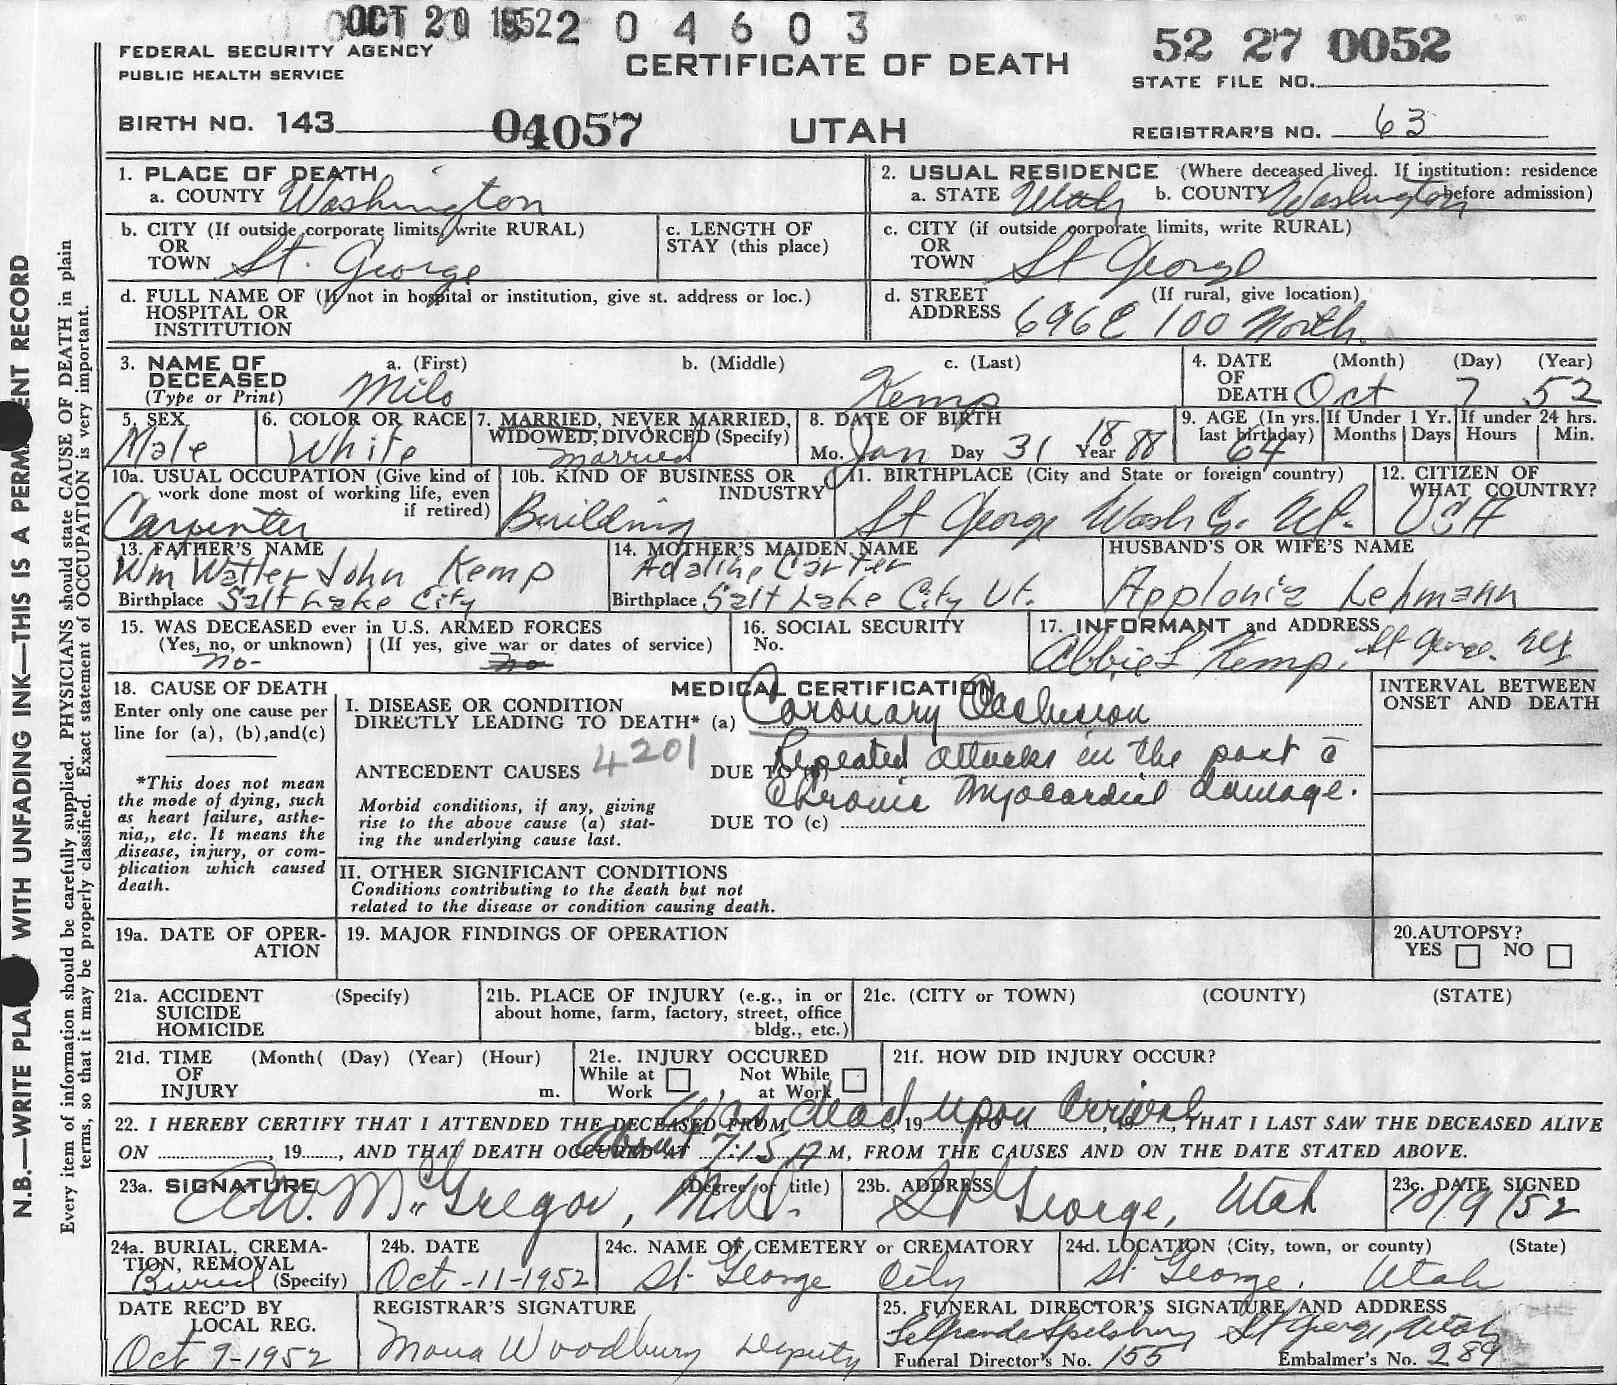 OCT 20 1952 2 0 4 6 0 3
FEDERAL SECURITY AGENCY
PUBLIC HEALTH SERVICE
CERTIFICATE OF DEATH
52 27 0052
STATE FILE NO.
BIRTH NO. 143 04057
UTAH
REGISTRAR'S NO. 63
1. PLACE OF DEATH
a. COUNTY Washington
2. USUAL RESIDENCE (Where deceased lived. If institution: residence before admission)
a. STATE Utah b. COUNTY Washington
b. CITY (If outside corporate limits, write RURAL)
OR
TOWN St. George
c. LENGTH OF
STAY (this place)
c. CITY (if outside corporate limits, write RURAL)
OR
TOWN St George
d. FULL NAME OF (If not in hospital or institution, give st. address or loc.)
HOSPITAL OR
INSTITUTION
d. STREET (If rural, give location)
ADDRESS 696 E 100 North
3. NAME OF a. (First) b. (Middle) c. (Last)
DECEASED
(Type or Print) Milo Kemp
4. DATE (Month) (Day) (Year)
OF
DEATH Oct 7 52
5. SEX
Male
6. COLOR OR RACE
White
7. MARRIED, NEVER MARRIED,
WIDOWED, DIVORCED (Specify)
Married
8. DATE OF BIRTH
Mo. Jan Day 31 Year 1888
9. AGE (In yrs. last birthday) 64
If Under 1 Yr.
Months Days
If under 24 hrs.
Hours Min.
10a. USUAL OCCUPATION (Give kind of
work done most of working life, even
if retired)
Carpenter
10b. KIND OF BUSINESS OR
INDUSTRY
Building
11. BIRTHPLACE (City and State or foreign country)
St George Wash Co. Ut.
12. CITIZEN OF
WHAT COUNTRY?
USA
13. FATHER'S NAME
Wm Watler John Kemp
Birthplace Salt Lake City
14. MOTHER'S MAIDEN NAME
Adaline Carter
Birthplace Salt Lake City Ut.
HUSBAND'S OR WIFE'S NAME
Applonia Lehmann
15. WAS DECEASED ever in U.S. ARMED FORCES
(Yes, no, or unknown) (If yes, give war or dates of service)
no- no
16. SOCIAL SECURITY
No.
17. INFORMANT and ADDRESS
Abbie L Kemp, St George.
18. CAUSE OF DEATH
Enter only one cause per
line for (a), (b),and(c)
*This does not mean
the mode of dying, such
as heart failure, asthe-
nia,, etc. It means the
disease, injury, or com-
plication which caused
death.
MEDICAL CERTIFICATION
I. DISEASE OR CONDITION
DIRECTLY LEADING TO DEATH* (a) Coronary Occlusion
4201
ANTECEDENT CAUSES DUE TO (b) Repeated attacks in the past c̄
Morbid conditions, if any, giving
rise to the above cause (a) stat-
ing the underlying cause last.
Chronic Myocardial damage.
DUE TO (c)
INTERVAL BETWEEN
ONSET AND DEATH
II. OTHER SIGNIFICANT CONDITIONS
Conditions contributing to the death but not
related to the disease or condition causing death.
19a. DATE OF OPER-
ATION
19. MAJOR FINDINGS OF OPERATION
20.AUTOPSY?
YES NO
21a. ACCIDENT (Specify)
SUICIDE
HOMICIDE
21b. PLACE OF INJURY (e.g., in or
about home, farm, factory, street, office
bldg., etc.)
21c. (CITY or TOWN) (COUNTY) (STATE)
21d. TIME (Month( (Day) (Year) (Hour)
OF
INJURY m.
21e. INJURY OCCURED
While at Work Not While at Work
21f. HOW DID INJURY OCCUR?
Was dead upon arrival
22. I HEREBY CERTIFY THAT I ATTENDED THE DECEASED FROM , 19 TO , 19 , THAT I LAST SAW THE DECEASED ALIVE
ON , 19 , AND THAT DEATH OCCURED AT About 7:15 A M, FROM THE CAUSES AND ON THE DATE STATED ABOVE.
23a. SIGNATURE (Degree or title)
A.W. McGregor, M.D.
23b. ADDRESS
St George, Utah
23c. DATE SIGNED
10/9/52
24a. BURIAL, CREMA-
TION, REMOVAL
Buried (Specify)
24b. DATE
Oct-11-1952
24c. NAME OF CEMETERY or CREMATORY
St George City
24d. LOCATION (City, town, or county) (State)
St George, Utah
DATE REC'D BY
LOCAL REG.
Oct 9-1952
REGISTRAR'S SIGNATURE
Mona Woodbury Deputy
25. FUNERAL DIRECTOR'S SIGNATURE AND ADDRESS
Spilsbury St George, Utah
Funeral Director's No. 155 Embalmer's No. 289
N.B.—WRITE WITH UNFADING INK—THIS IS A RECORD
Every item of information should be carefully supplied. PHYSICIANS should state CAUSE OF DEATH in plain
terms, so that it may be properly classified. Exact statement of OCCUPATION is very important.